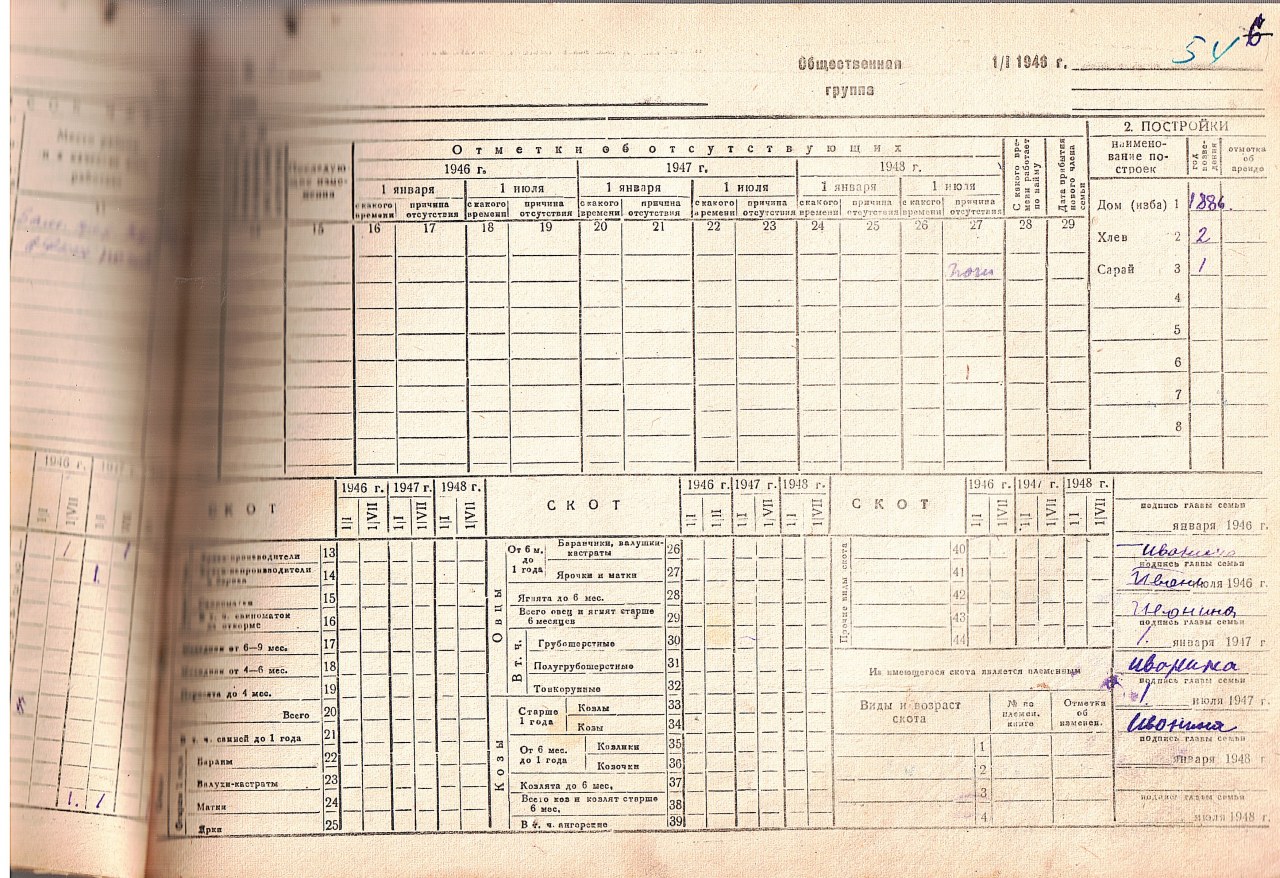 54 6
Общественная группа
1/I 1946 г.
Отметки об отсутствующих
1946 г. 1947 г. 1948 г.
1 января 1 июля 1 января 1 июля 1 января 1 июля
с какого времени причина отсутствия с какого времени причина отсутствия с какого времени причина отсутствия с какого времени причина отсутствия с какого времени причина отсутствия с какого времени причина отсутствия
С какого времени работает по найму
Дата прибытия нового члена семьи
15 16 17 18 19 20 21 22 23 24 25 26 27 28 29
2. ПОСТРОЙКИ
наименование построек
год возведения
отметка об аренде
Дом (изба) 1 1886.
Хлев 2 2
Сарай 3 1
4
5
6
7
8
1946 г.
СКОТ 1946 г. 1947 г. 1948 г.
1|I 1|VII 1|I 1|VII 1|I 1|VII
13
14
15
16
от 6—9 мес. 17
от 4—6 мес. 18
до 4 мес. 19
Всего 20
В т. ч. свиней до 1 года 21
Бараны 22
Валухи-кастраты 23
Матки 24
Ярки 25
СКОТ 1946 г. 1947 г. 1948 г.
1|I 1|II 1|I 1|VII 1|I 1|VII
Овцы
От 6 м. до 1 года
Баранчики, валушки-кастраты 26
Ярочки и матки 27
Ягнята до 6 мес. 28
Всего овец и ягнят старше 6 месяцев 29
В т. ч.
Грубошерстные 30
Полугрубошерстные 31
Тонкорунные 32
Козы
Старше 1 года
Козлы 33
Козы 34
От 6 мес. до 1 года
Козлики 35
Козочки 36
Козлята до 6 мес. 37
Всего коз и козлят старше 6 мес. 38
В т. ч. ангорские 39
СКОТ 1946 г. 1947 г. 1948 г.
1|I 1|VII 1|I 1|VII 1|I 1|VII
Прочие виды скота
40
41
42
43
44
Из имеющегося скота является племенным
Виды и возраст скота
№ по племен. книге
Отметка об изменен.
1
2
3
4
подпись главы семьи
января 1946 г.
Ивонина
подпись главы семьи
июля 1946 г.
Ивонина
подпись главы семьи
1. января 1947 г
Ивонина
подпись главы семьи
1. июля 1947 г
Ивонина
подпись главы семьи
января 1948 г
подпись главы семьи
июля 1948 г.